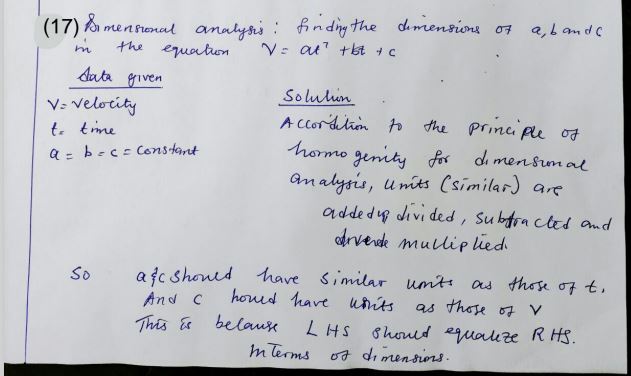 (17) Dimensional analysis : finding the dimensions of a, b and c
in the equation V = at² + bt + c
Data given
V = velocity
t = time
a = b = c = constant
Solution
Accordition to the principle of
homogenity for dimensional
analysis, units (similar) are
added up divided, subtracted and
multiplied.
So a & c should have similar units as those of t.
And c hould have units as those of V
This is because LHS should equalize RHS.
In terms of dimensions.